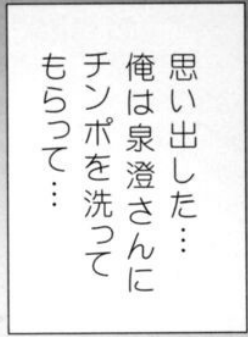 思い出した…
俺は泉澄さんに
チンポを洗って
もらって…